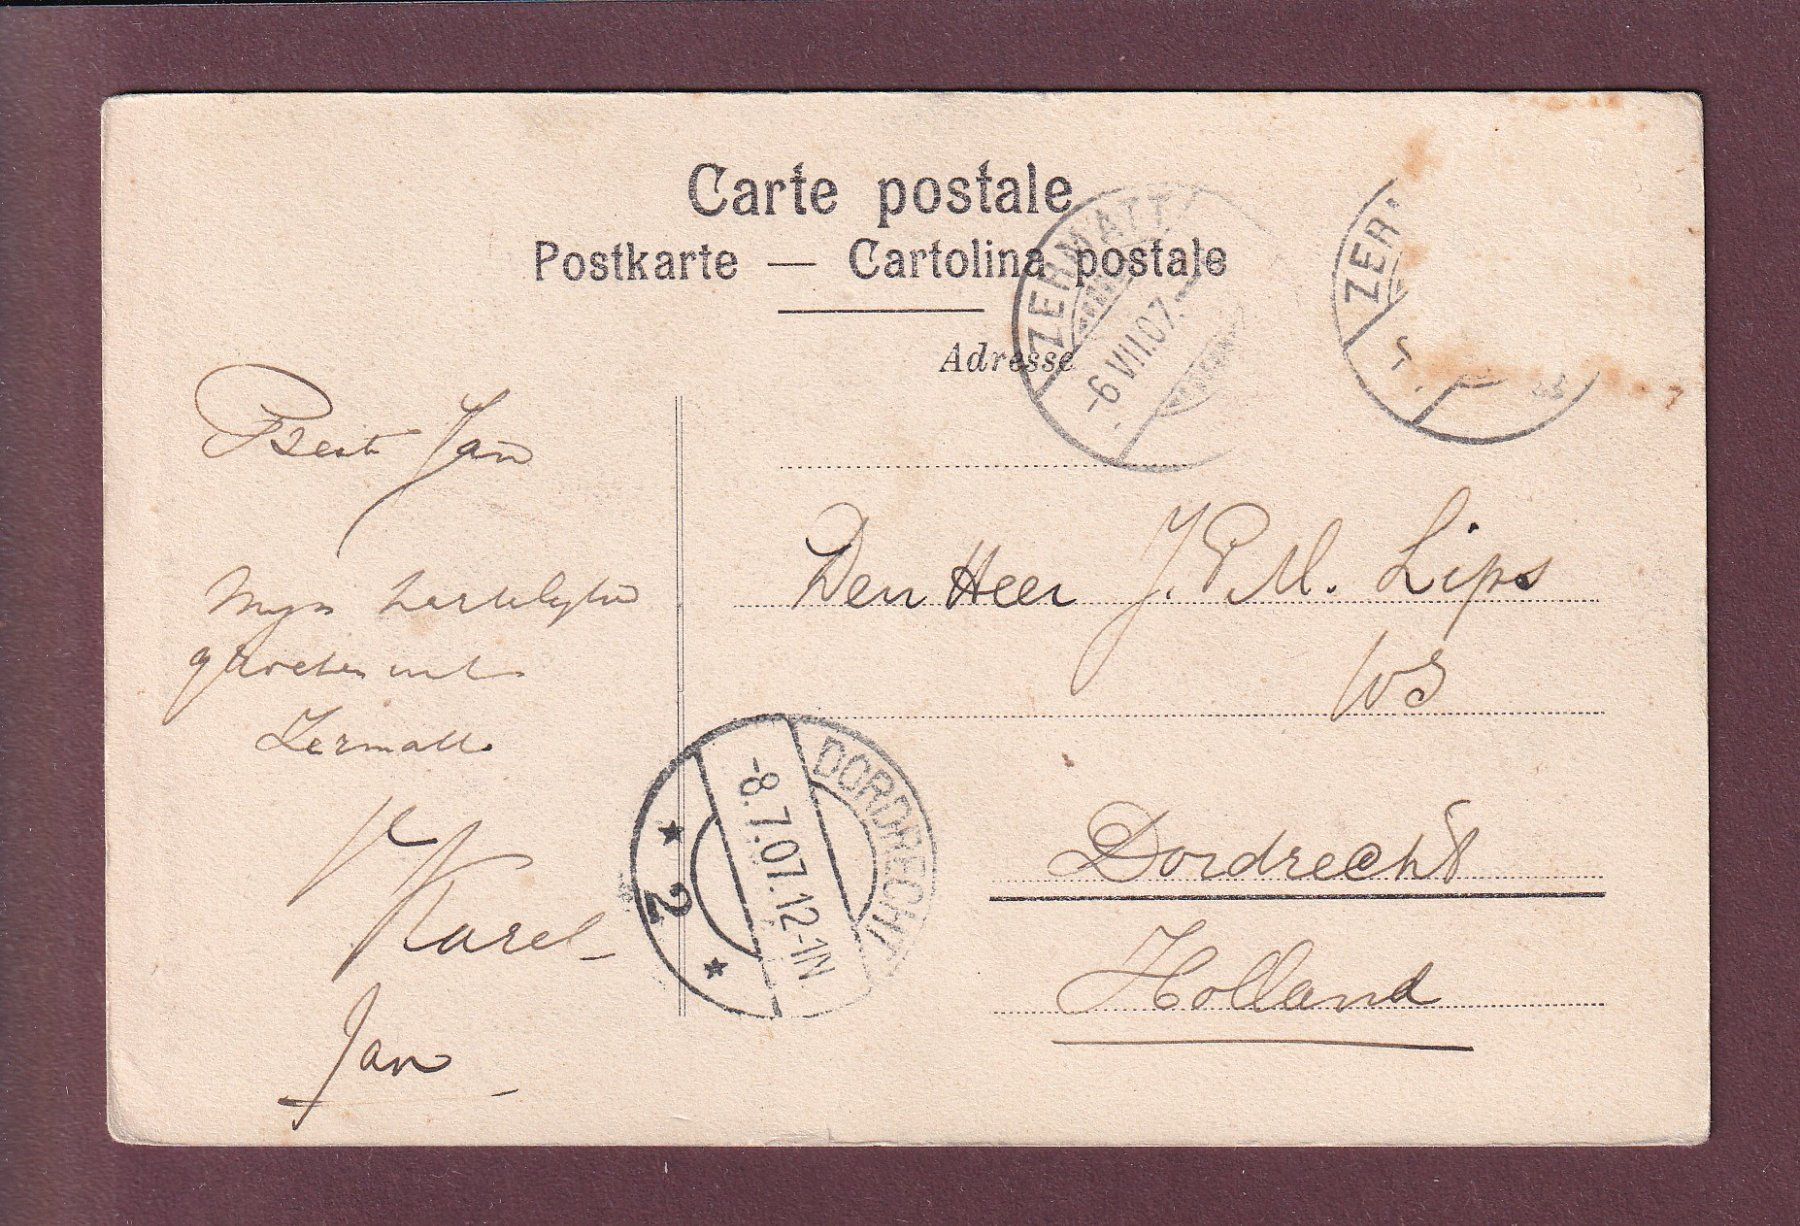 Carte postale
Postkarte — Cartolina postale
Adresse
ZERMATT
-6 VII.07.
ZER
Beste Jan
Mijn hartelijke
groeten uit
Zermatt.
Karel
Jan
Den Heer J. P. M. Lips
Dordrecht
Holland
DORDRECHT
-8.7.07.12-1N
* 2 *